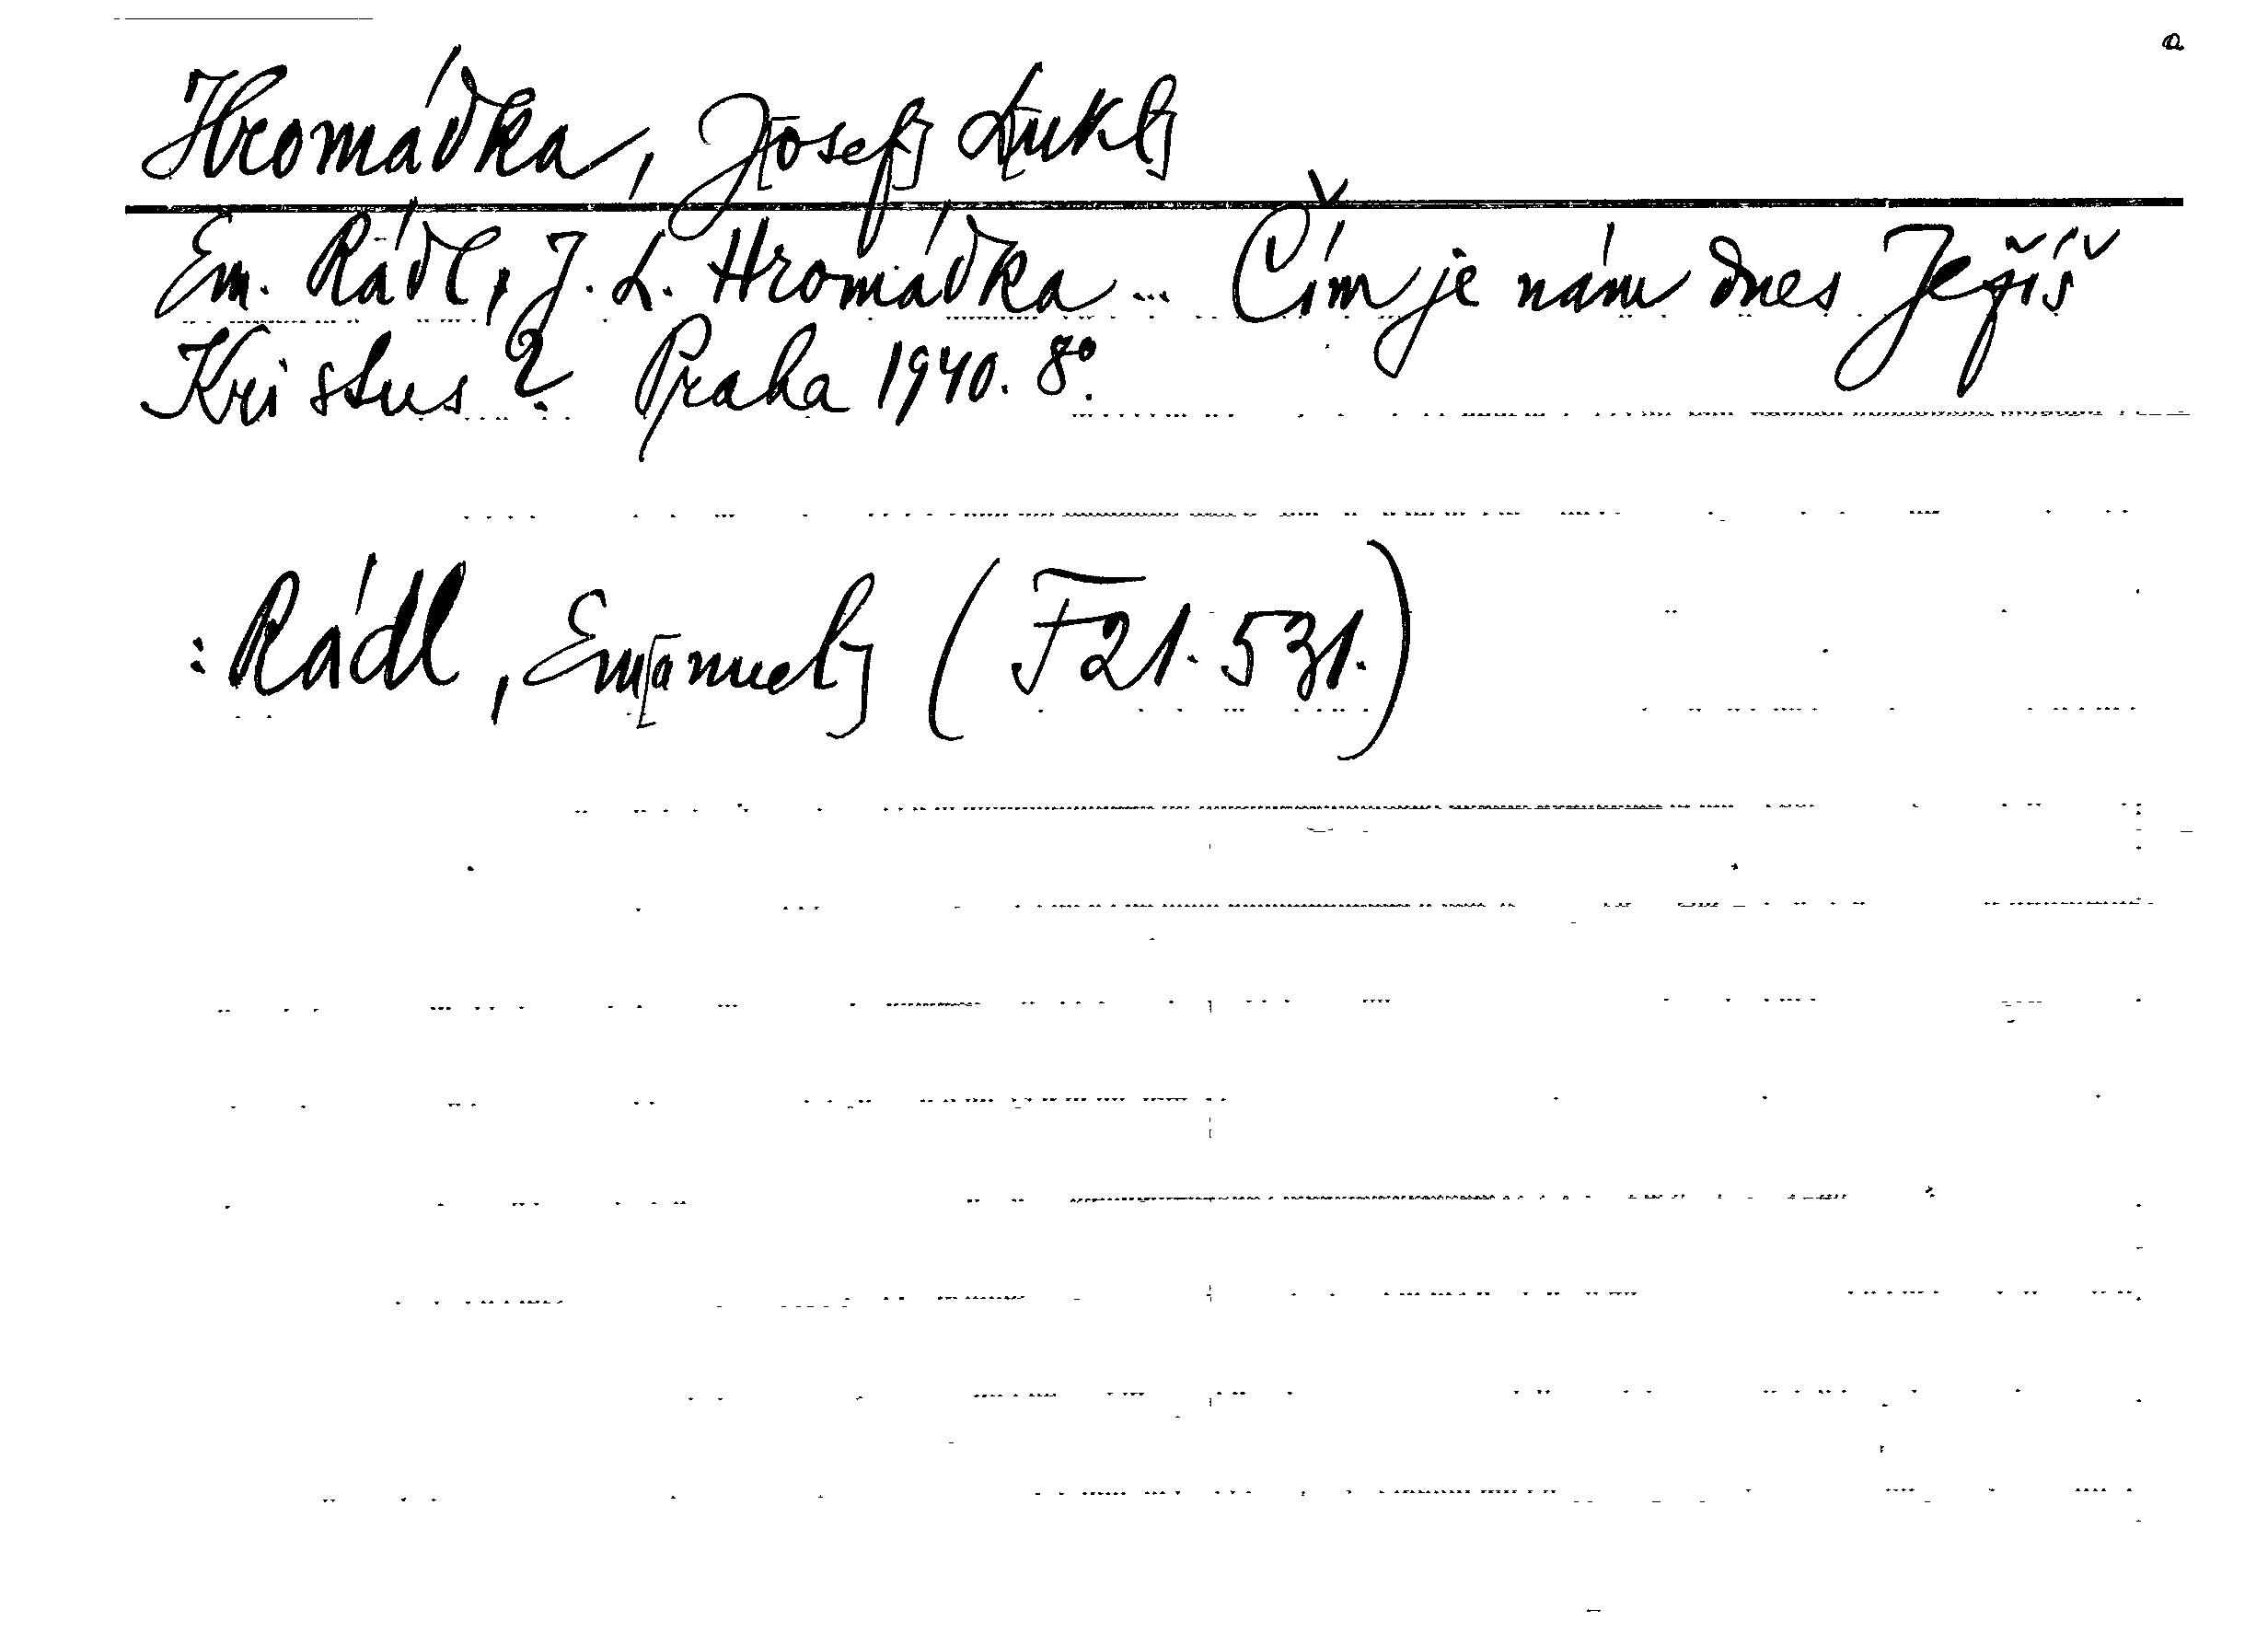 a
Hromádka, J[osef] L[ukl]
Em. Rádl, J. L. Hromádka ... Čím je nám dnes Ježíš
Kristus? Praha 1940. 8°.
: Rádl, Em[anuel] (F21.531.)